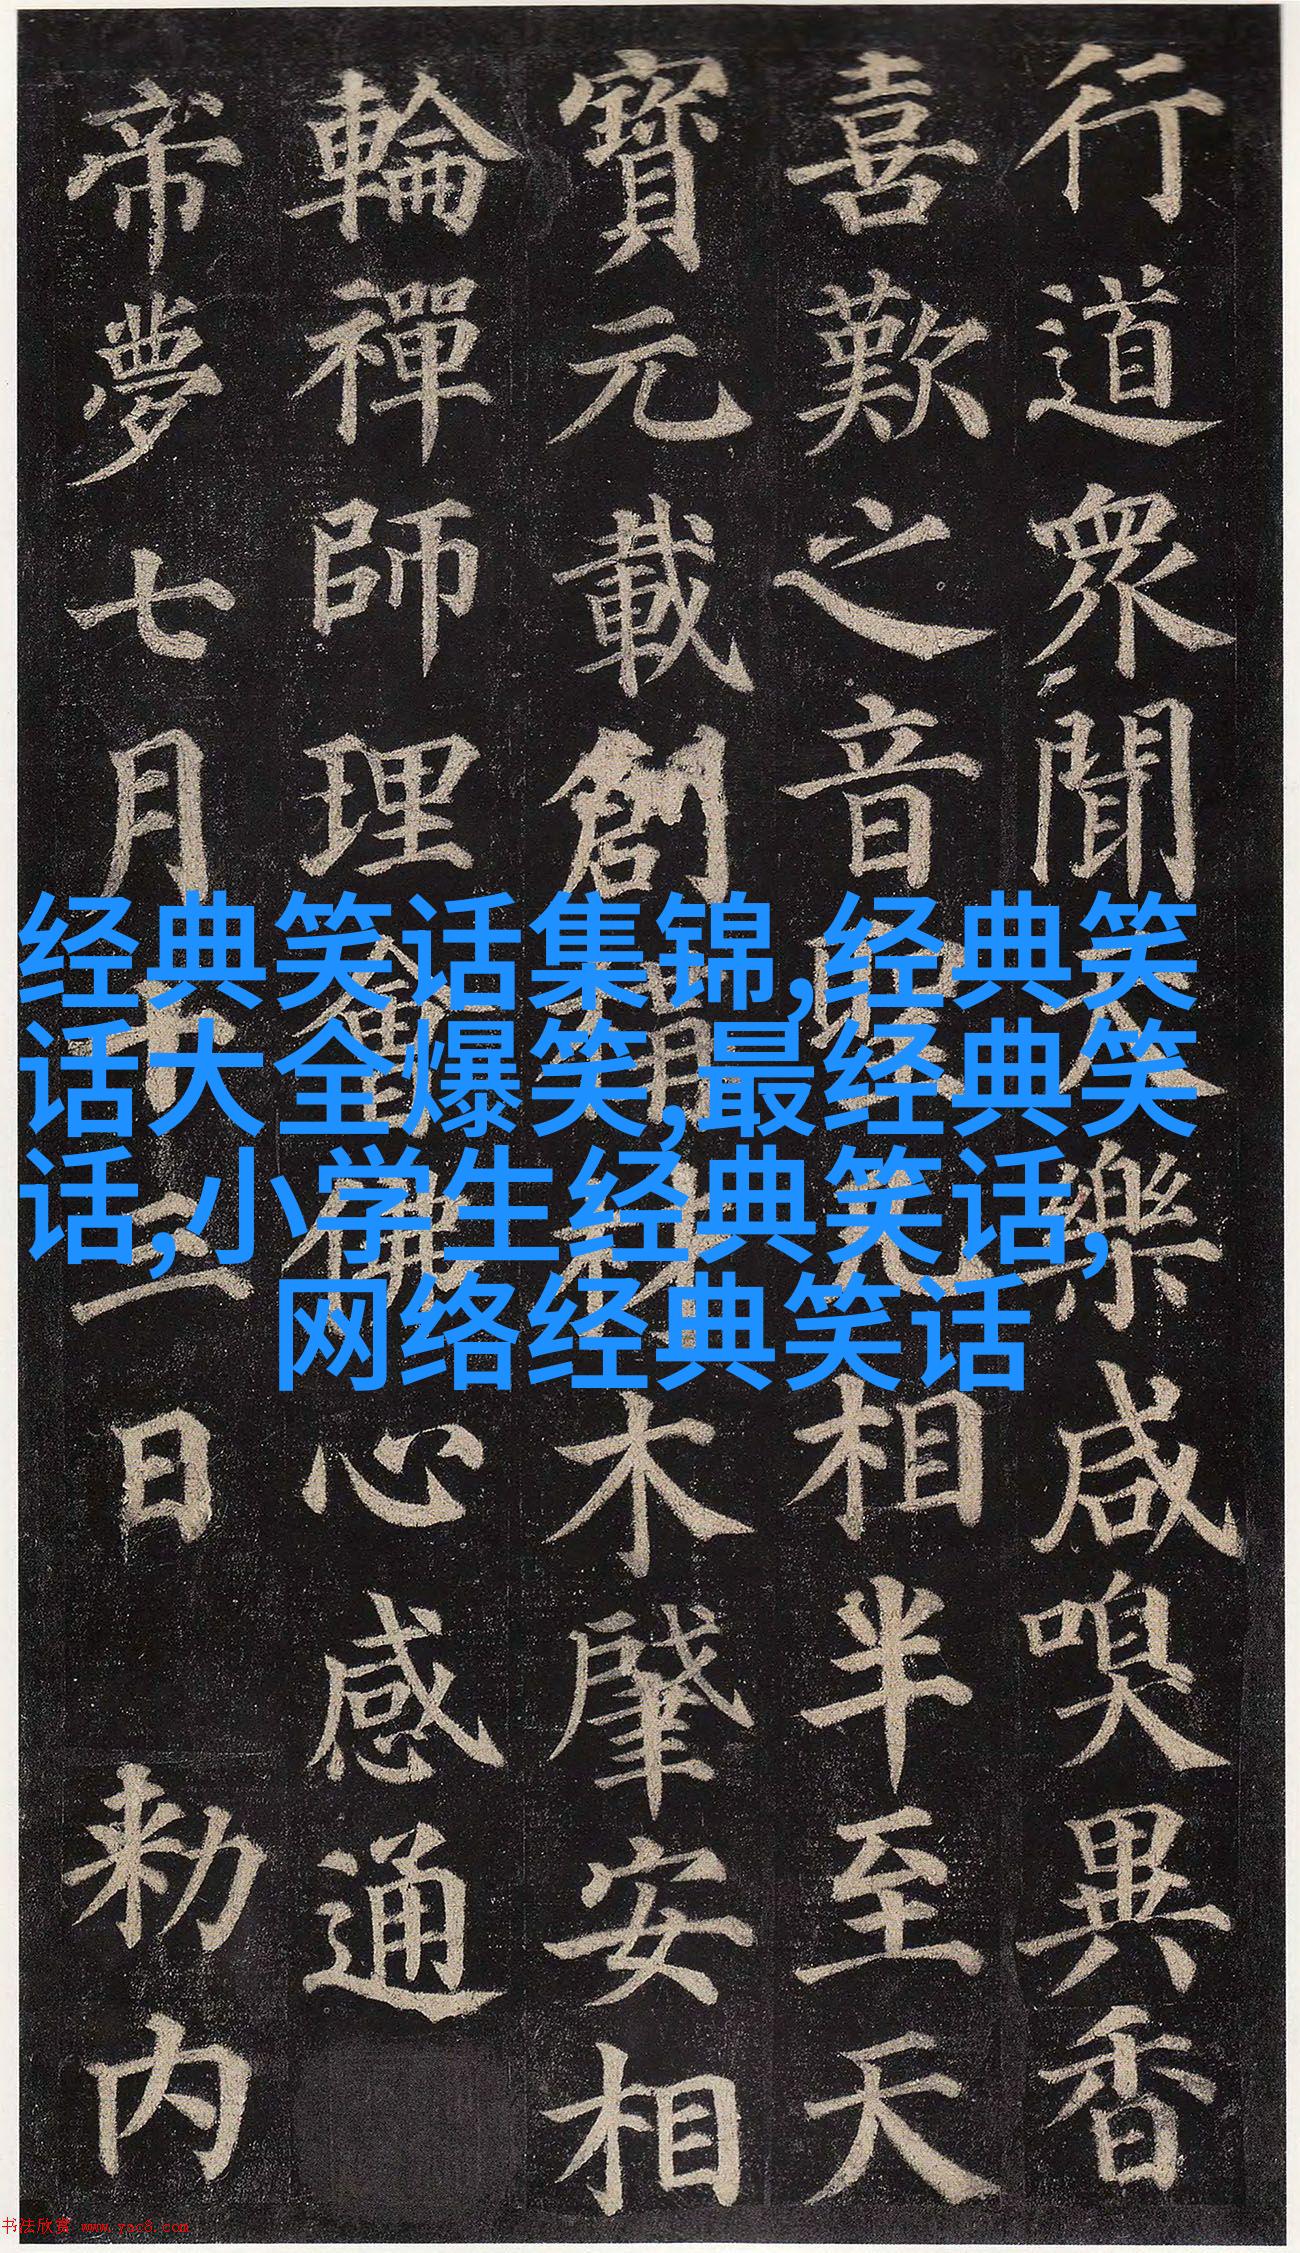 行道眾聞樂咸嗅異香
喜歎之音聖相半至天
寶元載創材木肇安相
輪禪師理會佛心感通
帝夢七月十三日
勅内
经典笑话集锦,经典笑
话大全爆笑,最经典笑
话,小学生经典笑话,
网络经典笑话
书法欣赏 www.yac8.com